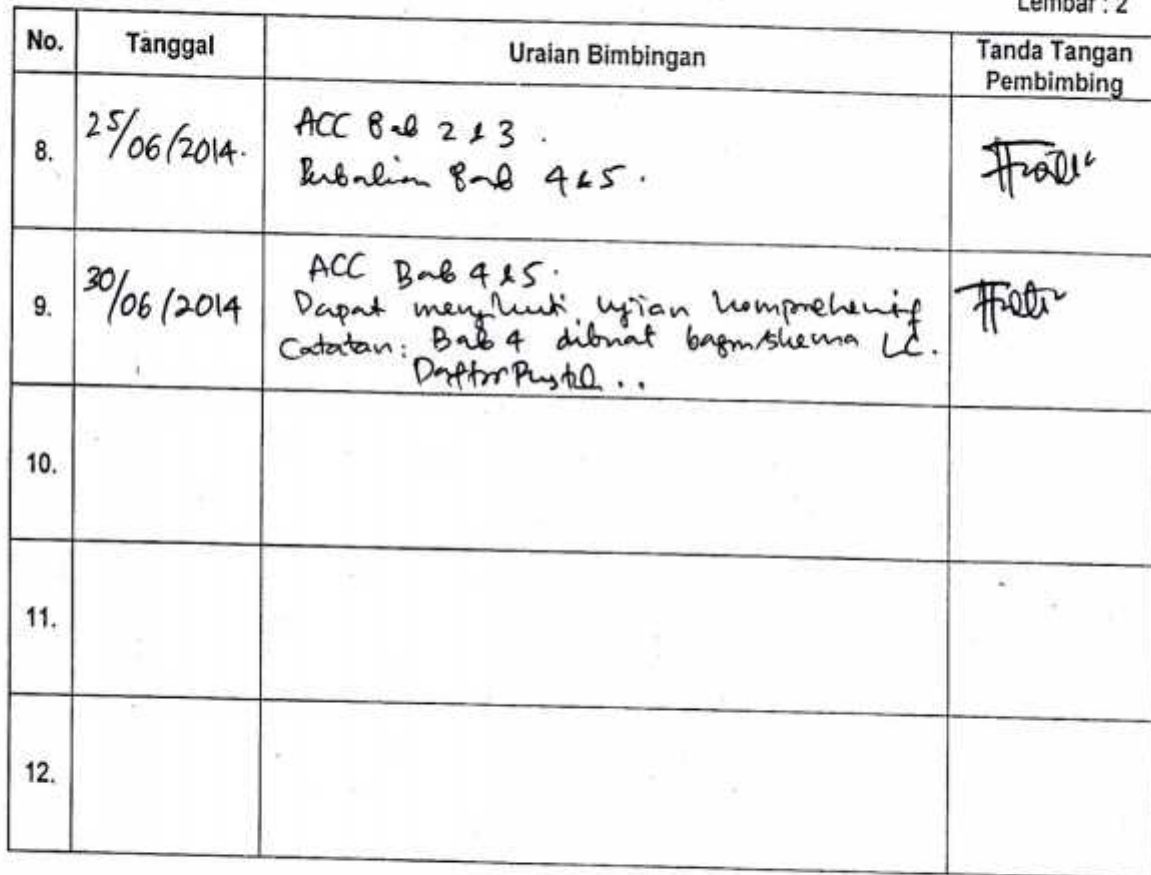 Lembar : 2
No. Tanggal Uraian Bimbingan Tanda Tangan
Pembimbing
8. 25/06/2014. ACC Bab 2 & 3.
Perbaikan Bab 4 & 5.
9. 30/06/2014 ACC Bab 4 & 5.
Dapat mengikuti ujian komprehensif
Catatan: Bab 4 dibuat bagan/skema LC.
Daftar Pustaka..
10.
11.
12.